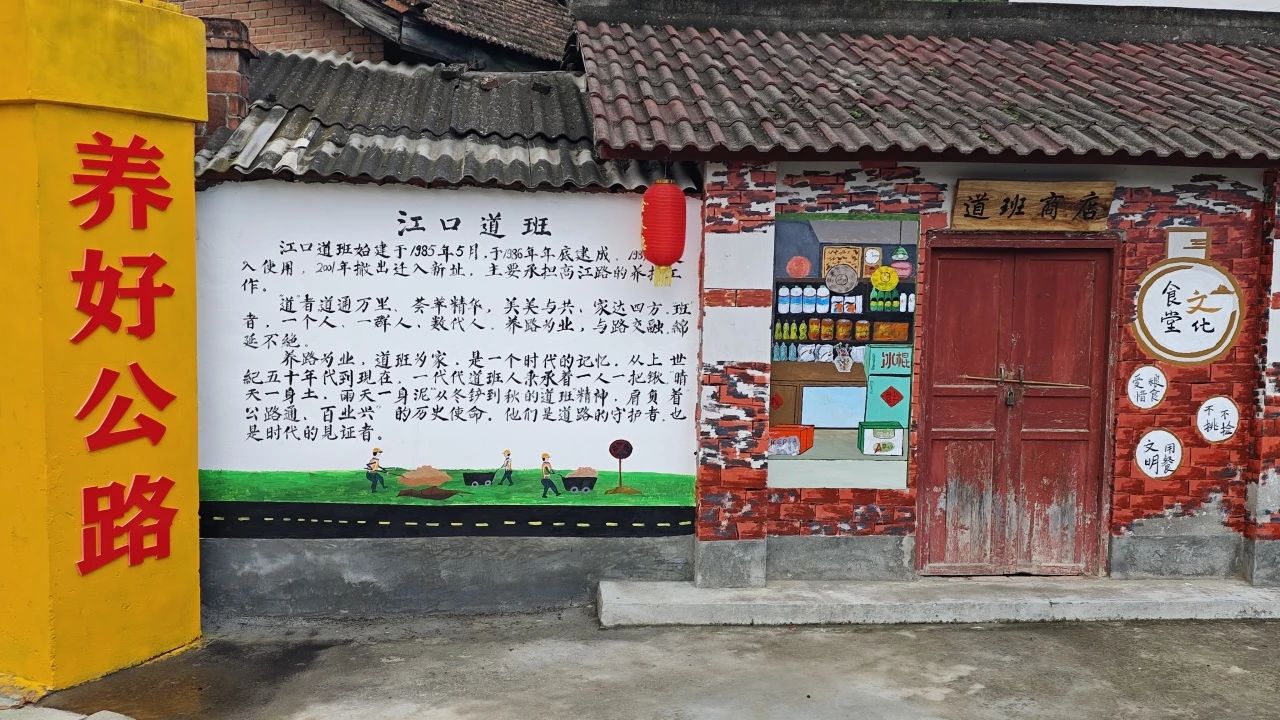 养好公路
江口道班
江口道班始建于1985年5月,于1986年年底建成,
入使用,2001年撤出迁入新址,主要承担高江路的养护工
作。
道者道通万里、荟萃精华,美美与共、家达四方,班
者,一个人、一群人、数代人、养路为业,与路交融,绵
延不绝。
养路为业,道班为家,是一个时代的记忆,从上世
纪五十年代到现在,一代代道班人秉承着一人一把锹"晴
天一身土,雨天一身泥"从冬护到秋的道班精神,肩负着
公路通,百业兴"的历史使命,他们是道路的守护者,也
是时代的见证者。
道班商店
冰棍
食堂
文化
爱惜
粮食
不挑
不捡
文明
用餐